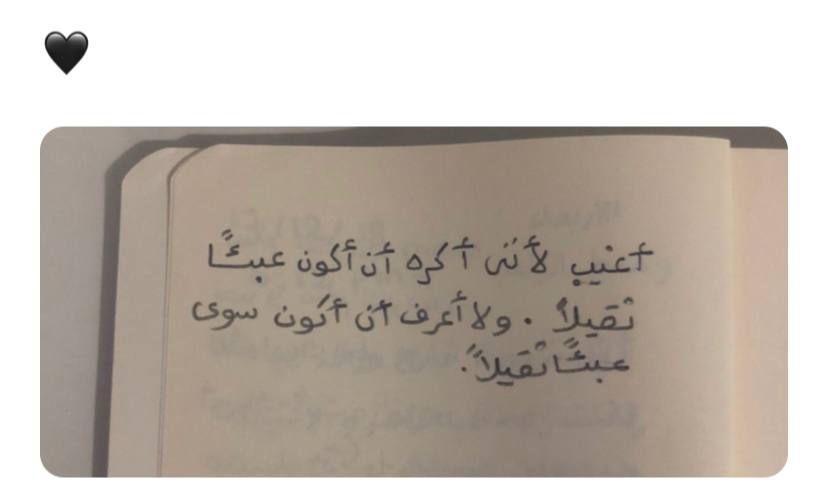 🖤
أغيب لأنني أكره أن أكون عبئًا
ثقيلاً . ولا أعرف أن أكون سوى
عبئًا ثقيلاً .